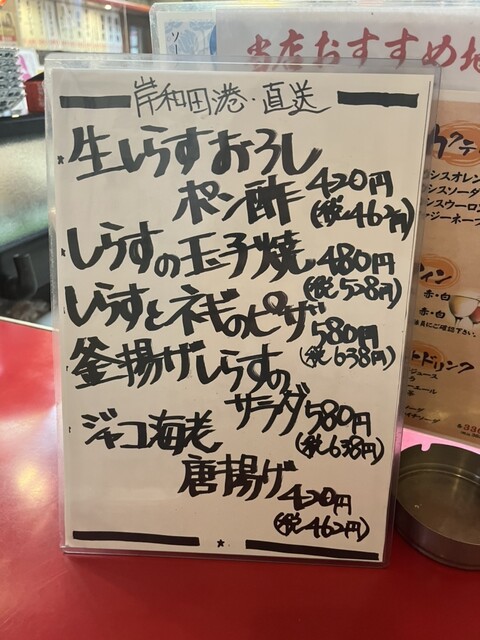 当店おすすめ地
岸和田港・直送
生しらすおろし
ポン酢 420円
(税462円)
しらすの玉子焼 480円
(税528円)
しらすとネギのピザ 580円
(税638円)
釜揚げしらすの
サラダ 580円
(税638円)
ジャコ海老
唐揚げ 420円
(税462円)
カクテ
シスオレン
シスソーダ
ンスウーロン
ージーネーブ
イン
赤・白
赤・白
ドリンク
ジュース